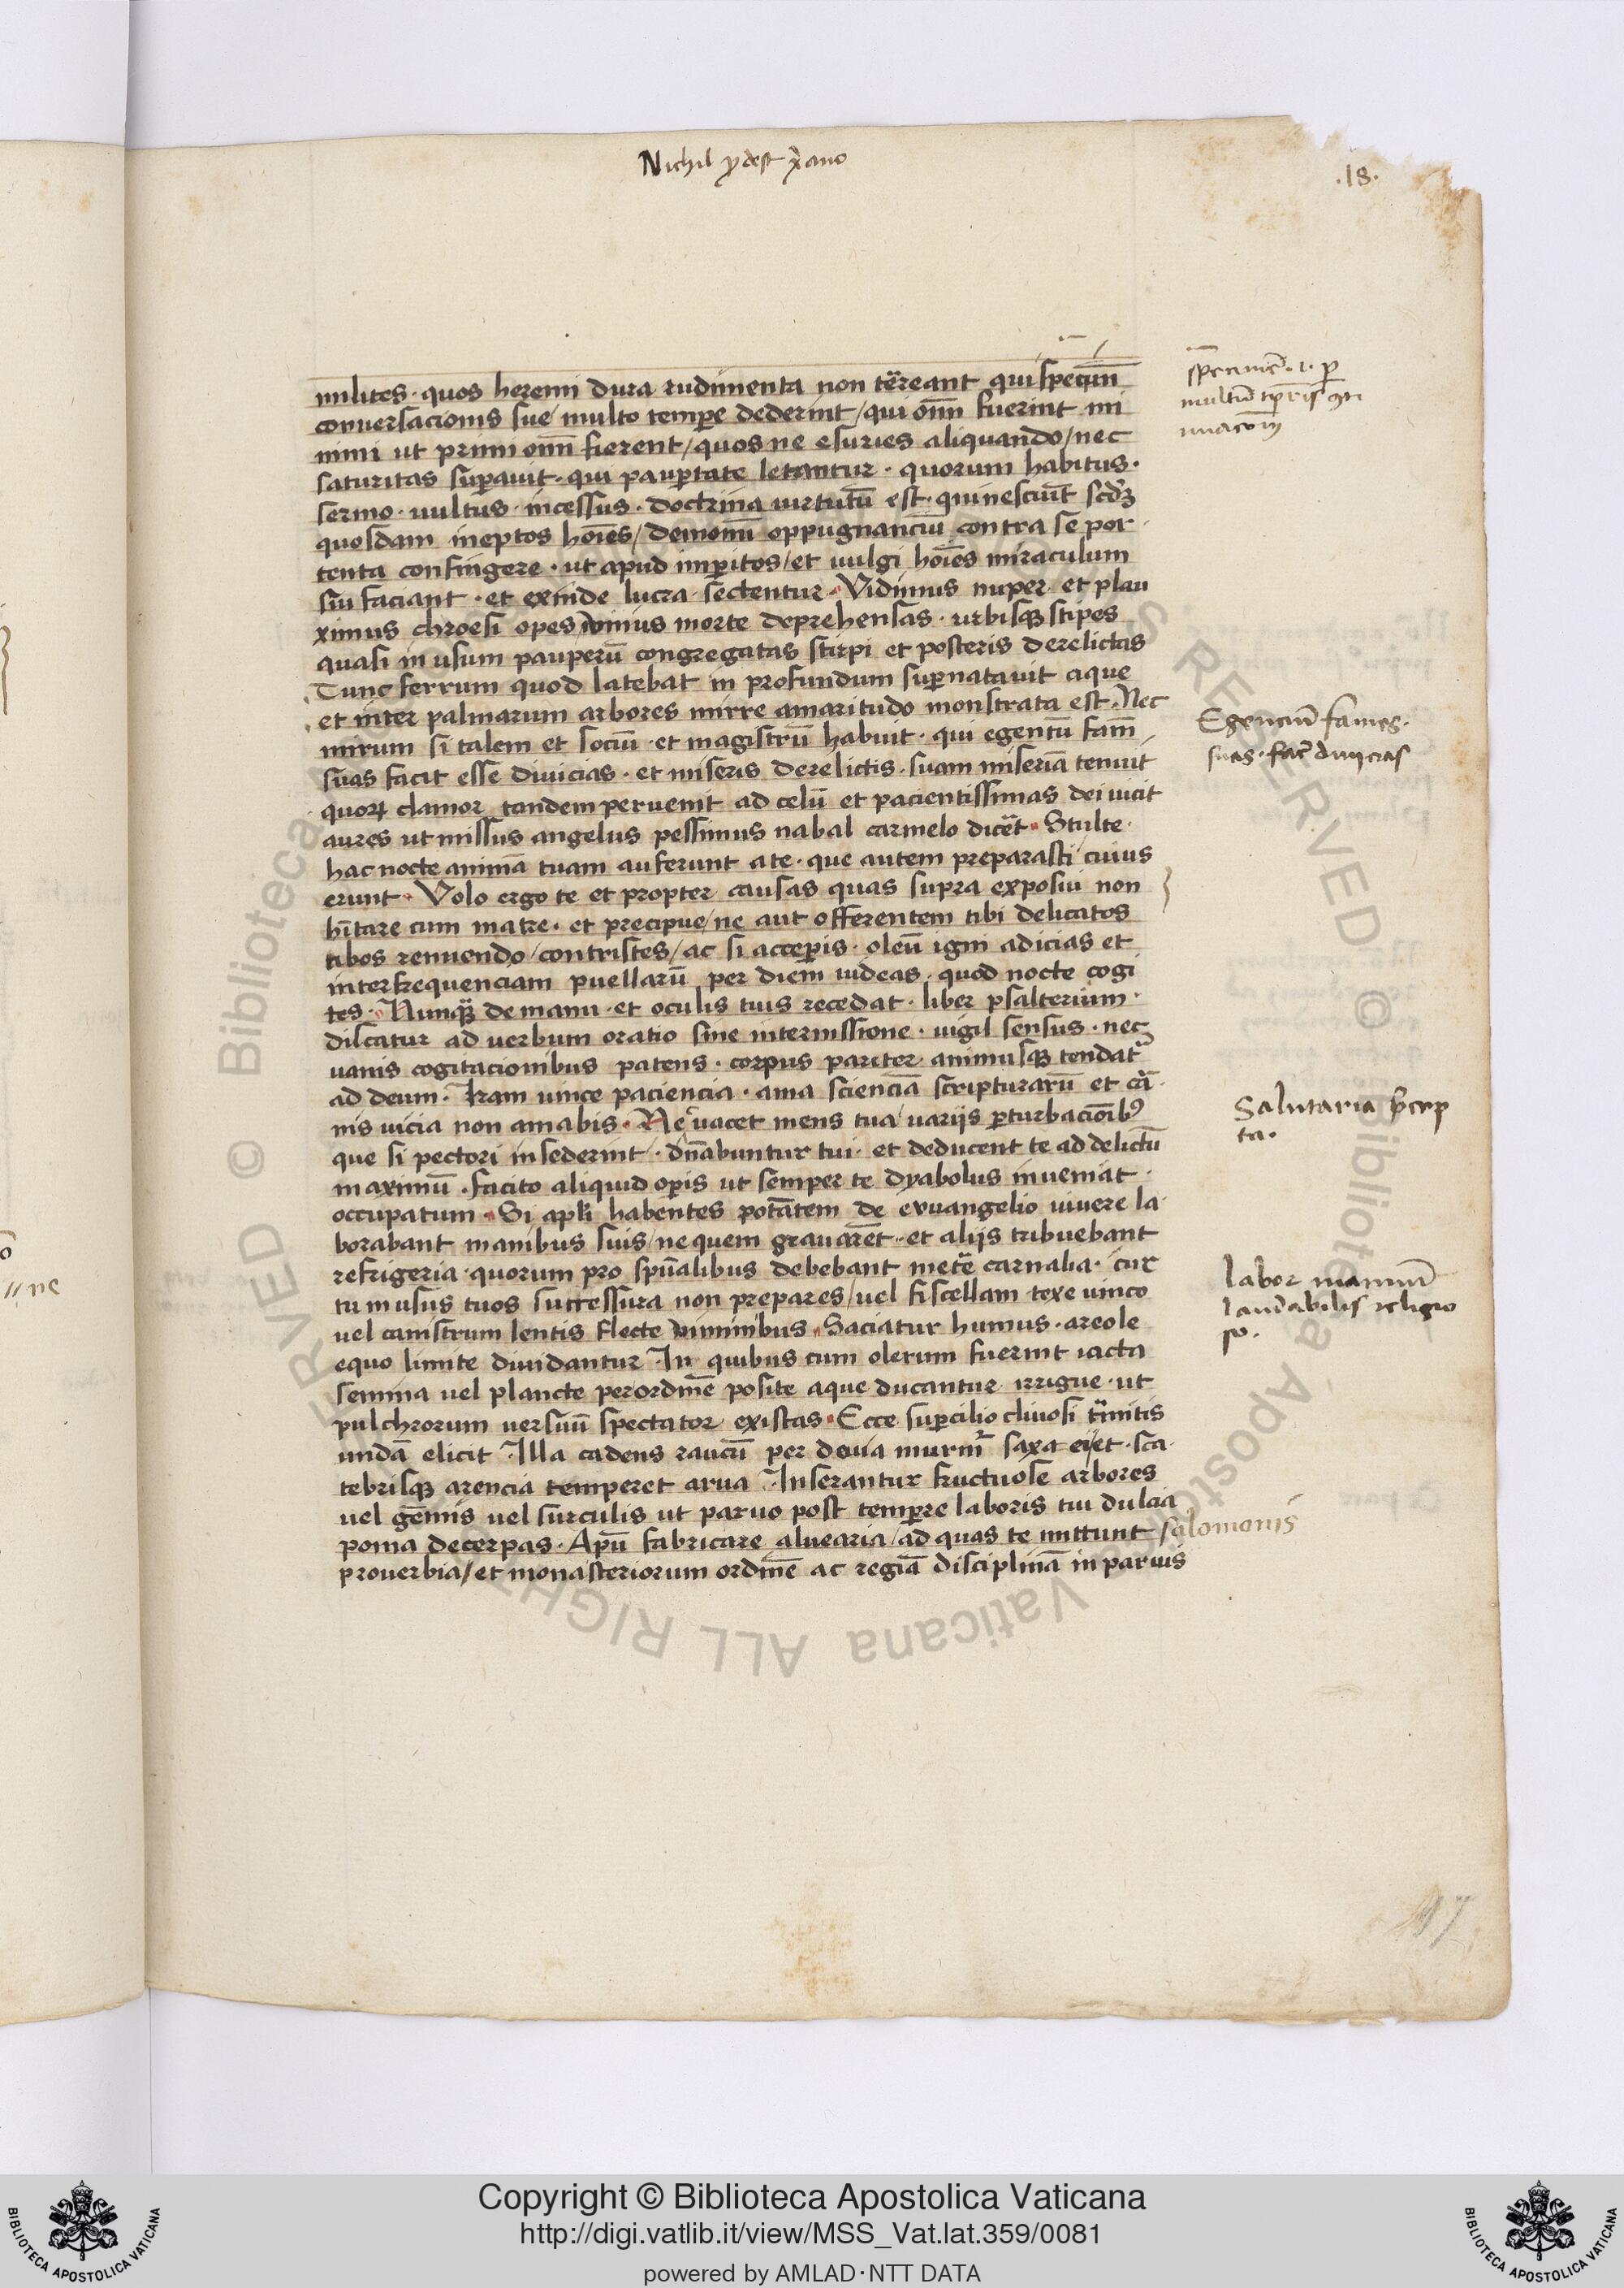 Nichil ꝓdest xp̄ano
.18.
milites · quos heremi dura rudimenta non tērreant qui specim̄
conuersacionis sue / multo tempe dederint / qui om̄ fuerint mi
nimi ut primi om̄ fierent / quos ne esuries aliquando / nec
saturitas suꝑauit · qui pauꝑtate letantur · quorum habitus ·
sermo · uultus · incessus · doctrina uirtutū est · qui nesciūt scd̄ꝫ
quosdam ineptos hoīes / demonū oppugnanciū contra se por
tenta confingere · ut apud imꝑitos / et uulgi hoīes miraculum
sui faciant · et exinde lucra sectentur · Vidimus nuper et plan
ximus chroesi opes unius morte deprehensas · urbisqꝫ stipes
quasi in usum pauperū congregatas stirpi et posteris derelictas
Tunc ferrum quod latebat in profundum suꝑnatauit aque
et inter palmarum arbores mirre amaritudo monstrata est · Nec
mirum si talem et sociū et magistrū habuit · qui egentū fam̄
suas facit esse diuicias · et miseris derelictis · suam miseriā tenuit
quoꝝ clamor tandem peruenit ad celū et pacientissimas dei uicit
aures ut missus angelus pessimus nabal carmelo dicēt · Stulte ·
hac nocte animā tuam auferunt a te · que autem preparasti / cuius
erunt · Volo ergo te et propter causas quas supra exposui non
hītare cum matre · et precipue / ne aut offerentem tibi delicatos
cibos renuendo / contristes / ac si acceꝑis · oleū igni adicias et
inter frequenciam puellarū per diem uideas · quod nocte cogi
tes · Nunqȝ de manu · et oculis tuis recedat · liber psalterium ·
discatur ad uerbum oratio sine intermissione · uigil sensus · nec
uanis cogitacionibus patens · corpus pariter animusqꝫ tendat᷑
ad deum · Iram uince paciencia · ama scienciā scripturarū et cā
nis uicia non amabis · Ne uacet mens tua / uarijs ꝑturbacionibꝰ
que si pectori insederint · dn̄abuntur tui · et deducent te ad delictū
maximū · facito aliquid oꝑis ut semper te dyabolus inueniat ·
occupatum · Si apl̄i habentes potātem de euuangelio uiuere la
borabant manibus suis / ne quem grauarēt · et alijs tribuebant
refrigeria · quorum pro spūalibus debebant metē carnalia · cur
tu in usus tuos successura non prepares / uel fiscellam texe uinco
uel canistrum lentis flecte uiminibus · Saciatur humus · areole
equo limite diuidantur In quibus cum olerum fuerint iacta
semina uel plancte per ordinē posite aque ducantur irrigue · ut
pulchrorum uersuū spectator existas · Ecce suꝑcilio cliuosi tᷓmitis
undā elicit Illa cadens raucū per deuia murm᷑ saxa eijet · sca
tebrisqꝫ arencia temperet arua Inserantur fructuose arbores
uel gēmis uel surculis ut paruo post temꝑre laboris tui dulcia
poma decerpas · Apū fabricare aluearia / ad quas te mittunt salomonis
prouerbia / et monasteriorum ordinē ac regiā disciplinā in paruis
multū tꝑris
Egenciū fames ·
suas · fac̄ diuicias
Salutaria p̄cep
ta ·
labor manuū
laudabilis religio
so ·
17
Copyright © Biblioteca Apostolica Vaticana
http://digi.vatlib.it/view/MSS_Vat.lat.359/0081
powered by AMLAD·NTT DATA
BIBLIOTECA APOSTOLICA VATICANA
BIBLIOTECA APOSTOLICA VATICANA